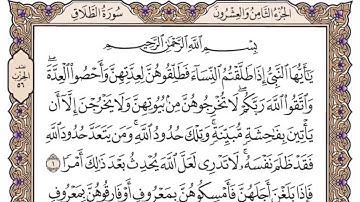 الجزء الثامن والعشرون
سورة الطلاق
بِسْمِ اللَّهِ الرَّحْمَٰنِ الرَّحِيمِ
يَٰٓأَيُّهَا ٱلنَّبِىُّ إِذَا طَلَّقْتُمُ ٱلنِّسَآءَ فَطَلِّقُوهُنَّ لِعِدَّتِهِنَّ وَأَحْصُوا۟ ٱلْعِدَّةَ ۖ
وَٱتَّقُوا۟ ٱللَّهَ رَبَّكُمْ ۖ لَا تُخْرِجُوهُنَّ مِنۢ بُيُوتِهِنَّ وَلَا يَخْرُجْنَ إِلَّآ أَن
يَأْتِينَ بِفَٰحِشَةٍ مُّبَيِّنَةٍ ۚ وَتِلْكَ حُدُودُ ٱللَّهِ ۚ وَمَن يَتَعَدَّ حُدُودَ ٱللَّهِ
فَقَدْ ظَلَمَ نَفْسَهُۥ ۚ لَا تَدْرِى لَعَلَّ ٱللَّهَ يُحْدِثُ بَعْدَ ذَٰلِكَ أَمْرًا ١
فَإِذَا بَلَغْنَ أَجَلَهُنَّ فَأَمْسِكُوهُنَّ بِمَعْرُوفٍ أَوْ فَارِقُوهُنَّ بِمَعْرُوفٍ
نصف
الحزب
٥٦